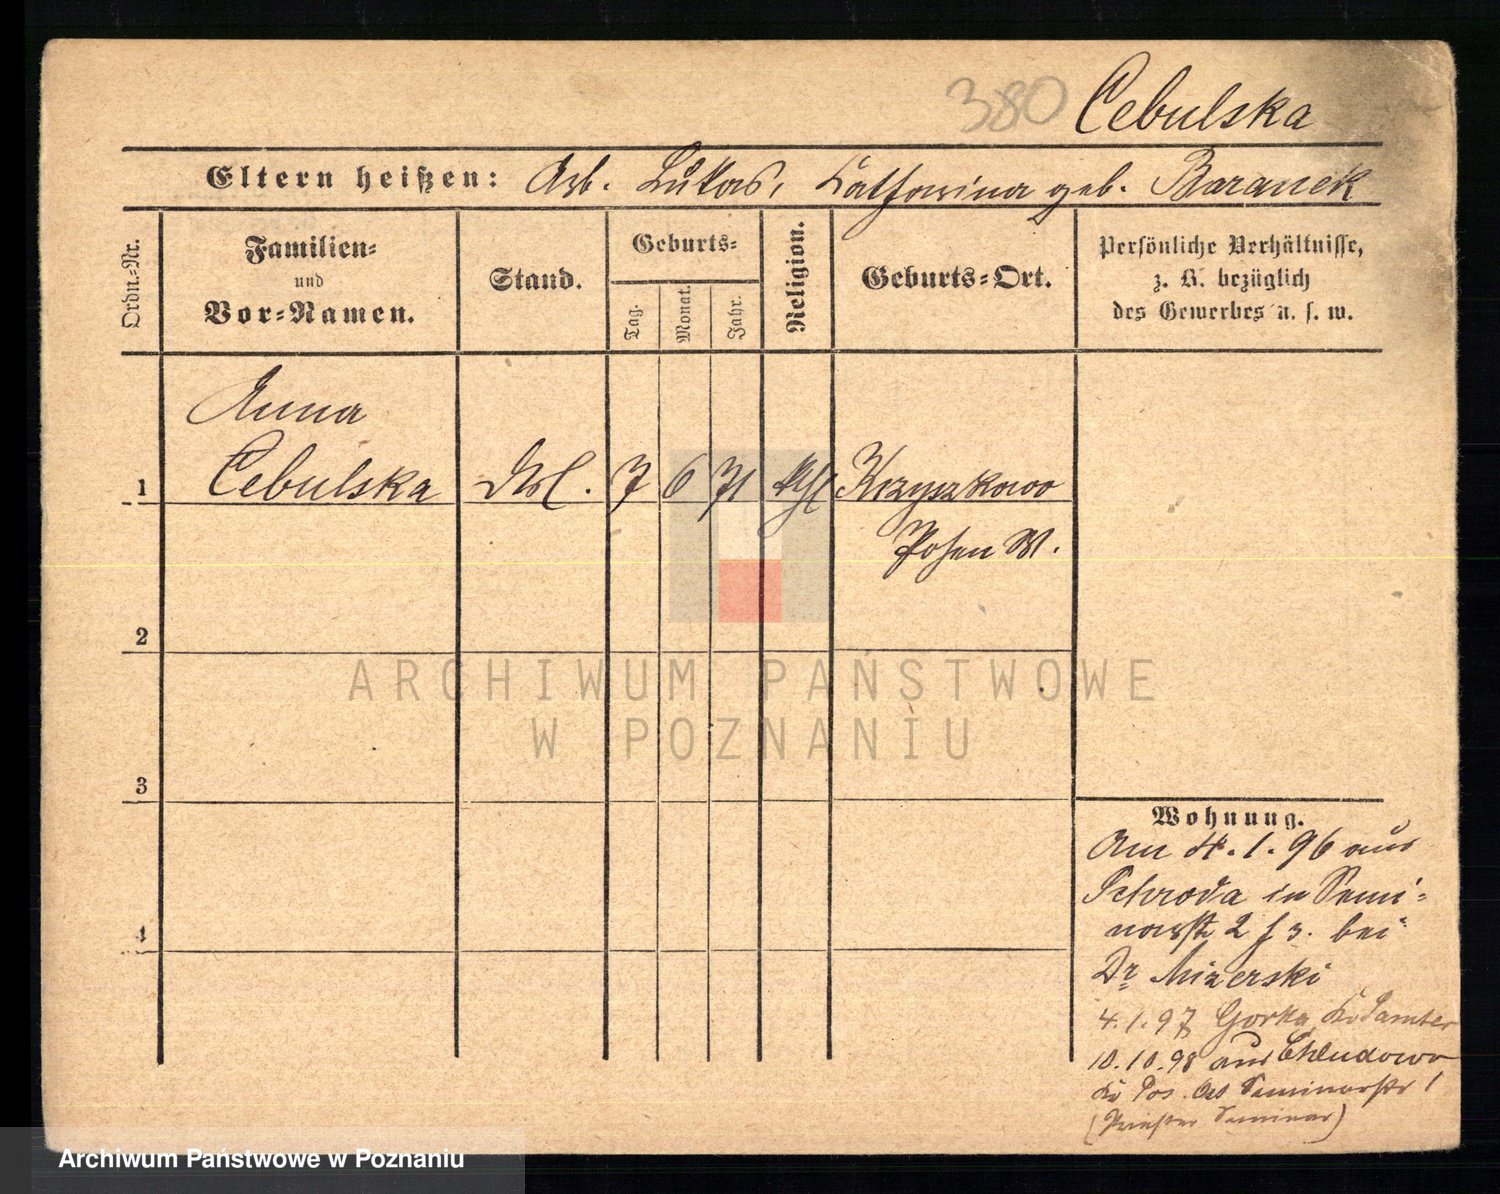 380 Cebulska
Eltern heißen: Arb. Lukas, Katharina geb. Baranek
Ordn.-Nr.
Familien-
und
Vor-Namen.
Stand.
Geburts-
Tag.
Monat.
Jahr.
Religion.
Geburts-Ort.
Persönliche Verhältnisse,
z. B. bezüglich
des Gewerbes u. s. w.
Anna
1 Cebulska 7 6 71 Krzyszkowo
Posen W.
2
3
4
Wohnung.
Am 4.1.96 aus
Schroda in Semi-
narstr 2 f 3. bei
Dr Mizerski
4.1.97 Gorka, Kr Samter
10.10.98 aus Chludowo
Kr Pos. Ost Seminarstr 1
(Priester Seminar)
ARCHIWUM PAŃSTWOWE
W POZNANIU
Archiwum Państwowe w Poznaniu